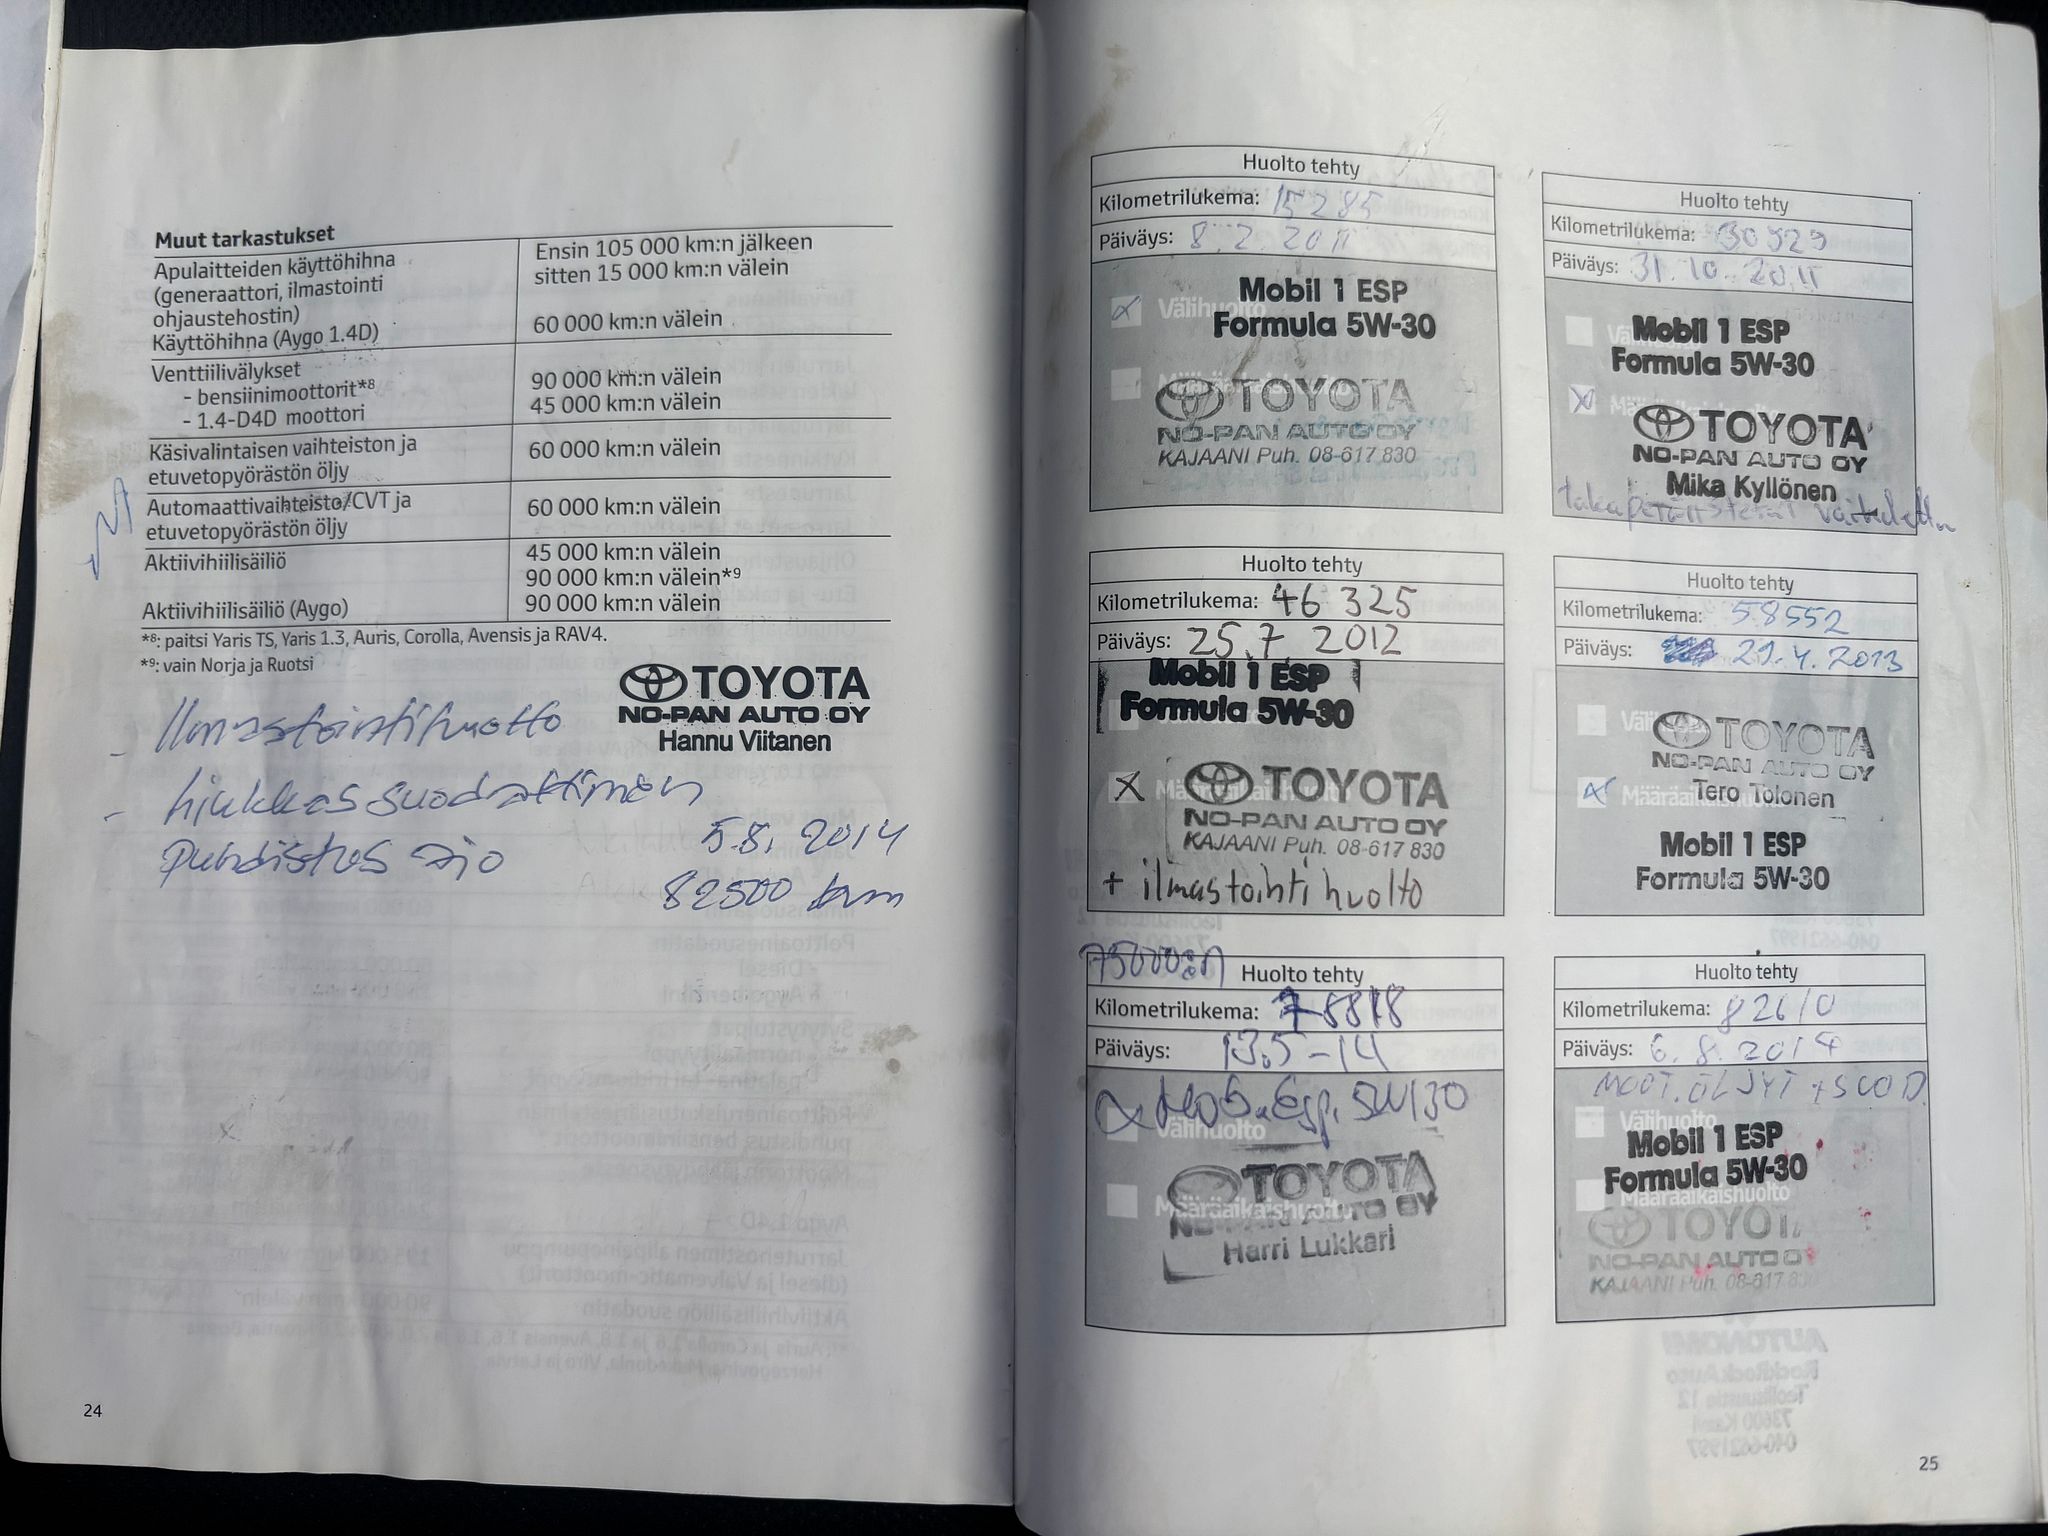 Muut tarkastukset
Apulaitteiden käyttöhihna
(generaattori, ilmastointi
ohjaustehostin)
Käyttöhihna (Aygo 1.4D)
Ensin 105 000 km:n jälkeen
sitten 15 000 km:n välein
60 000 km:n välein
Venttiilivälykset
- bensiinimoottorit*8
- 1.4-D4D moottori
90 000 km:n välein
45 000 km:n välein
Käsivalintaisen vaihteiston ja
etuvetopyörästön öljy
60 000 km:n välein
Automaattivaihteisto/CVT ja
etuvetopyörästön öljy
60 000 km:n välein
Aktiivihiilisäiliö
45 000 km:n välein
90 000 km:n välein*9
Aktiivihiilisäiliö (Aygo)
90 000 km:n välein
*8: paitsi Yaris TS, Yaris 1.3, Auris, Corolla, Avensis ja RAV4.
*9: vain Norja ja Ruotsi
TOYOTA
NO-PAN AUTO OY
Hannu Viitanen
- Ilmastointihuolto
- hiukkassuodattimen
puhdistus ajo
5.8. 2014
82500 km
24
Huolto tehty
Kilometrilukema: 15285
Päiväys: 8.2.2011
Mobil 1 ESP
Välihuolto
Formula 5W-30
TOYOTA
NO-PAN AUTO OY
KAJAANI Puh. 08-617 830
Huolto tehty
Kilometrilukema: 30929
Päiväys: 31.10.2011
Mobil 1 ESP
Formula 5W-30
TOYOTA
NO-PAN AUTO OY
Mika Kyllönen
Huolto tehty
Kilometrilukema: 46 325
Päiväys: 25.7. 2012
Mobil 1 ESP
Formula 5W-30
Määräaikaishuolto
TOYOTA
NO-PAN AUTO OY
KAJAANI Puh. 08-617 830
+ ilmastointi huolto
Huolto tehty
Kilometrilukema: 58552
Päiväys: 29.4.2013
Välihuolto
TOYOTA
NO-PAN AUTO OY
Määräaikaishuolto
Tero Tolonen
Mobil 1 ESP
Formula 5W-30
75000:n
Huolto tehty
Kilometrilukema: 78818
Päiväys: 13.5-14
Mob. Esp. 5W30
Välihuolto
TOYOTA
Määräaikaishuolto
NO-PAN AUTO OY
Harri Lukkari
Huolto tehty
Kilometrilukema: 82610
Päiväys: 6.8.2014
MOOT.ÖLJYT + SUOD.
Välihuolto
Mobil 1 ESP
Formula 5W-30
Määräaikaishuolto
TOYOTA
NO-PAN AUTO OY
KAJAANI Puh. 08-617 830
25